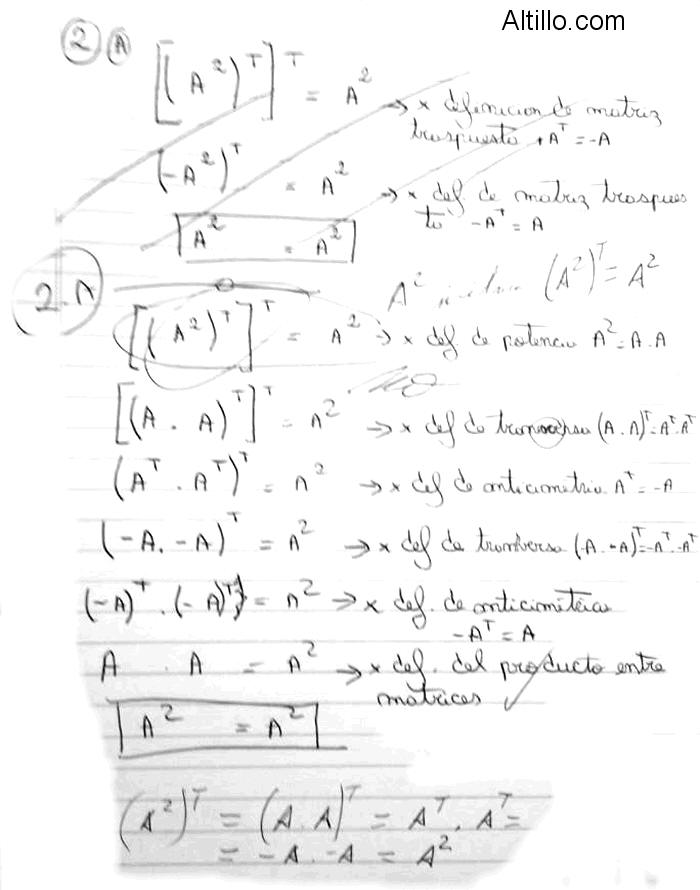 Altillo.com
2 A
[(A²)ᵀ]ᵀ = A² → x definicion de matriz
traspuesta + Aᵀ = -A
(-A²)ᵀ = A² → x def de matriz traspues
ta -Aᵀ = A
A² = A²
A² (A²)ᵀ = A²
2.A
[(A²)ᵀ]ᵀ = A² → x def. de potencia A² = A.A
[(A . A)ᵀ]ᵀ = A² → x def de (A.A)ᵀ = Aᵀ.Aᵀ
(Aᵀ . Aᵀ)ᵀ = A² → x def de anticimetria Aᵀ = -A
(-A. -A)ᵀ = A² → x def de (-A. -A)ᵀ = -Aᵀ. -Aᵀ
(-A)ᵀ . (-A)ᵀ = A² → x def. de anticimetrica
-Aᵀ = A
A . A = A² → x def. del producto entre
matrices ✓
A² = A²
(A²)ᵀ = (A.A)ᵀ = Aᵀ. Aᵀ =
= -A. -A = A²